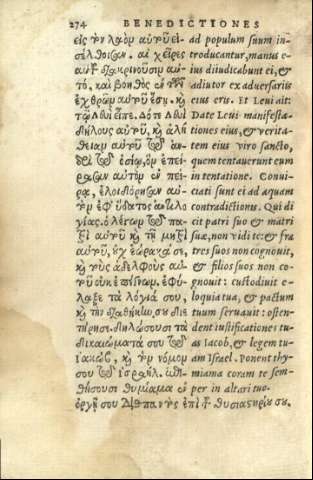 274 BENEDICTIONES
εἰς τὸν λαὸν αὐτοῦ εἰ-
σέλθοισαν. αἱ χεῖρες
αὐτοῦ διακρινοῦσιν αὐ-
τὸ, καὶ βοηθὸς ἐκ τῶν
ἐχθρῶν αὐτοῦ ἔσῃ. καὶ
τῷ Λευὶ εἶπε. Δότε Λευὶ
δήλους αὐτοῦ, καὶ ἀλή
θειαν αὐτοῦ τῷ ἀν-
δρὶ τῷ ὁσίῳ, ὃν ἐπεί-
ρασαν αὐτὸν ἐν πει-
ρᾳ, ἐλοιδόρησαν αὐ-
τὸν ἐφ' ὕδατος ἀντιλο
γίας. ὁ λέγων τῷ πα-
τρὶ αὐτοῦ καὶ τῇ μητρὶ
αὐτοῦ, οὐχ ἑώρακά σε,
καὶ τοὺς ἀδελφοὺς αὐ-
τοῦ οὐκ ἐπέγνω, ἐφύ-
λαξε τὰ λόγιά σου,
καὶ τὴν διαθήκην σου διε
τήρησε. δηλώσουσι τὰ
δικαιώματά σου τῷ
ἰακὼβ, καὶ τὸν νόμον
σου τῷ ἰσραήλ. ἐπι-
θήσουσι θυμίαμα ἐν
ὀργῇ σου διαπαντὸς ἐπὶ τὸ θυσιαστήριόν σου.
ad populum suum in-
troducantur, manus e-
ius diiudicabunt ei, &
adiutor ex aduersariis
eius eris. Et Leui ait:
Date Leui manifesta-
tiones eius, & verita-
tem eius viro sancto,
quem tentauerunt eum
in tentatione. Conui-
ciati sunt ei ad aquam
contradictionis. Qui di
cit patri suo & matri
suæ, non vidi te: & fra
tres suos non cognouit,
& filios suos non co-
gnouit: custodiuit e-
loquia tua, & pactum
tuum seruauit: osten-
dent iustificationes tu-
as Iacob, & legem tu-
am Israel. Ponent thy-
miama coram te sem-
per in altari tuo.